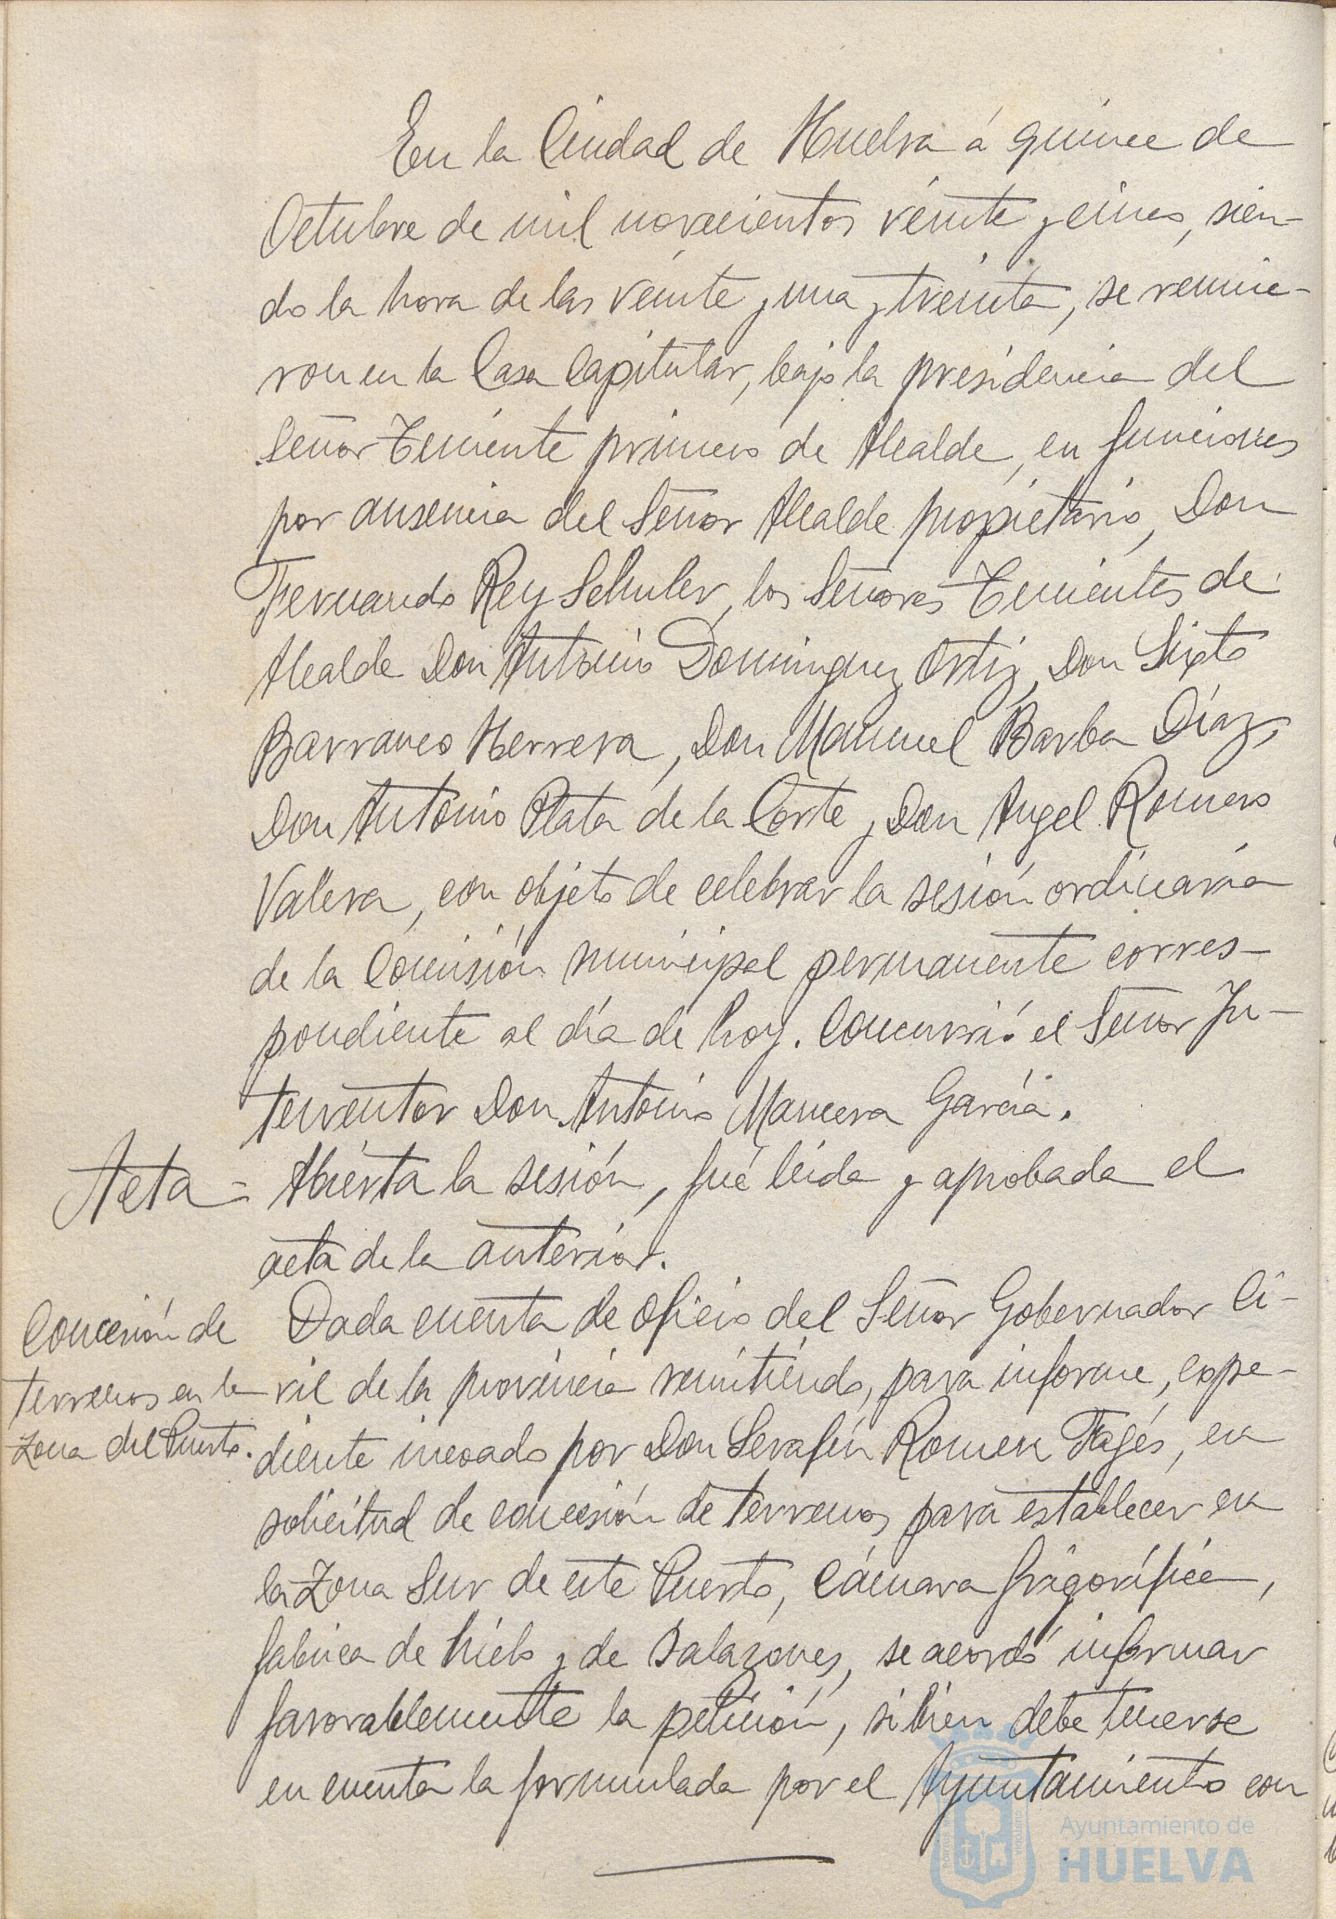 En la Ciudad de Huelva á quince de
Octubre de mil novecientos veinte y cinco, sien-
do la hora de las veinte y una y treinta, se reunie-
ron en la Casa Capitular, bajo la presidencia del
Señor Teniente primero de Alcalde, en funciones
por ausencia del Señor Alcalde propietario, Don
Fernando Rey Schuler, los Señores Tenientes de
Alcalde Don Antonio Dominguez Ortiz, Don Sixto
Barranco Herrera, Don Manuel Barba Díaz,
Don Antonio Plata de la Corte y Don Angel Romero
Valera, con objeto de celebrar la sesión ordinaria
de la Comisión municipal permanente corres-
pondiente al día de hoy. Concurrió el Señor In-
terventor Don Antonio Mancera García.
Acta = Abierta la sesión, fué leida y aprobada el
acta de la anterior.
Concesión de
terrenos en la
Zona del Puerto.
Dada cuenta de oficio del Señor Gobernador Ci-
vil de la provincia remitiendo, para informe, expe-
diente incoado por Don Serafín Romeu Fagés, en
solicitud de concesión de terrenos para establecer en
la Zona Sur de este Puerto, cámara frigorífica,
fabrica de hielo y de salazones, se acordó informar
favorablemente la petición, si bien debe tenerse
en cuenta la formulada por el Ayuntamiento con
Ayuntamiento de
HUELVA